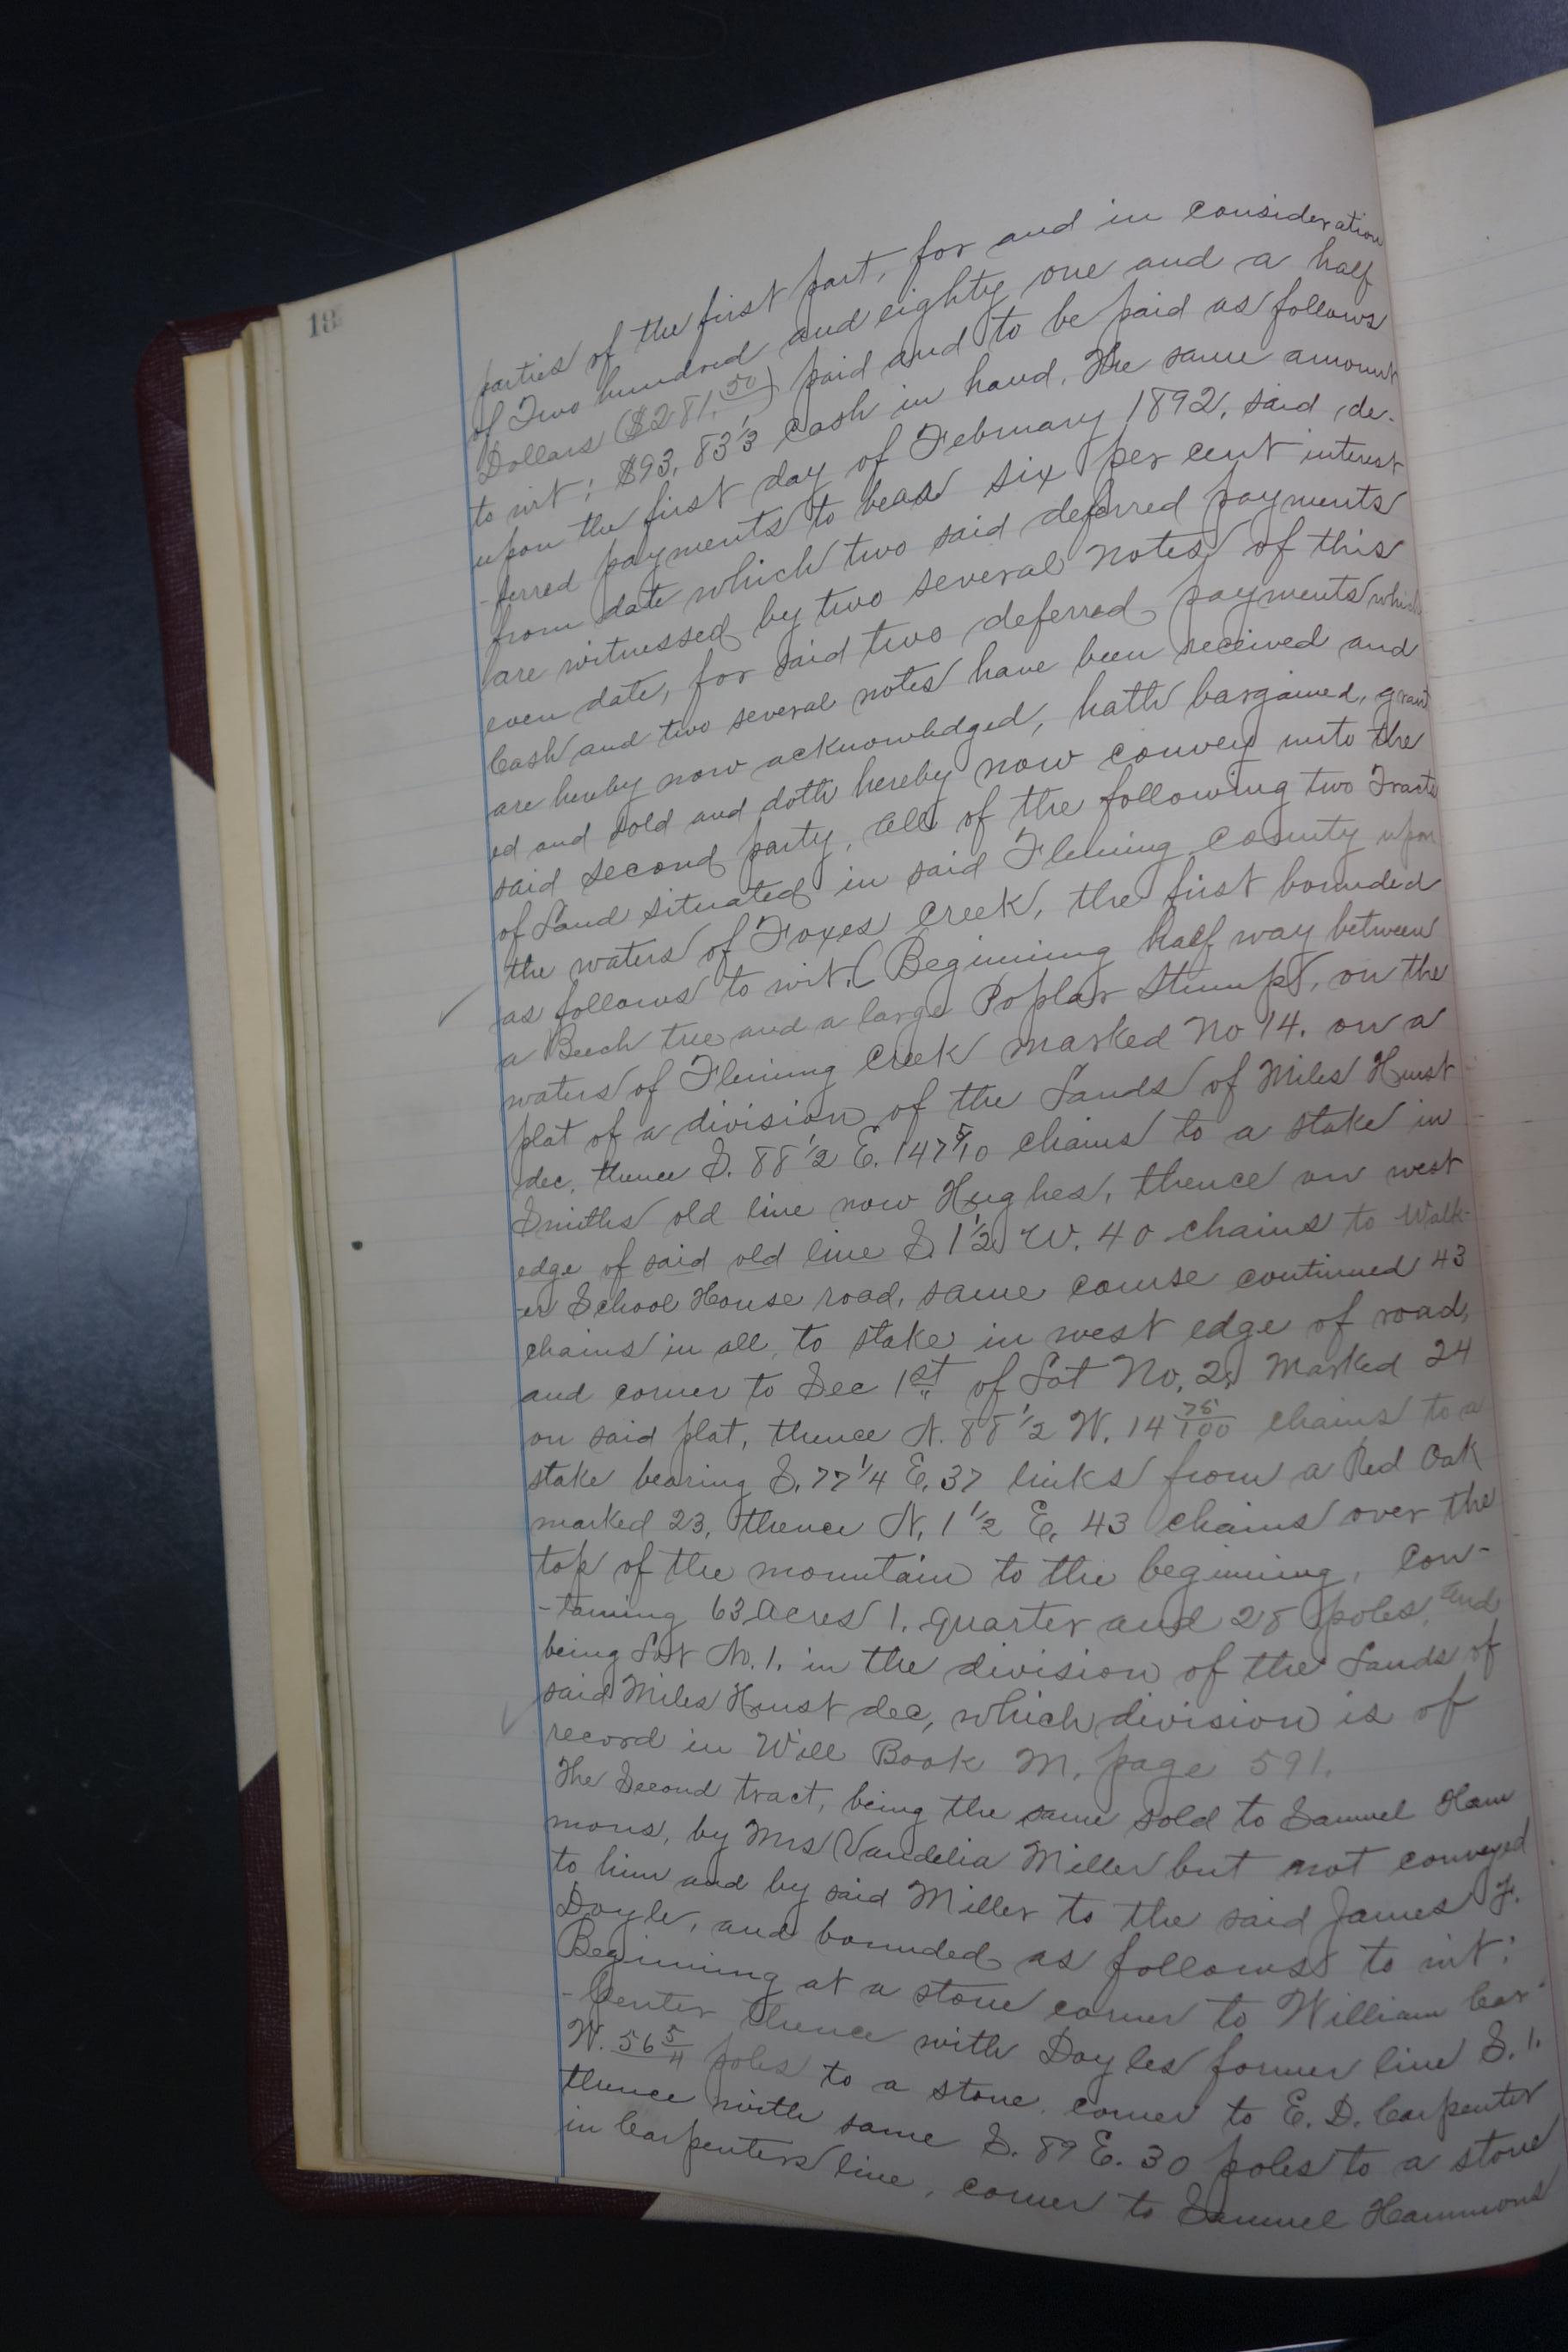 18
parties of the first part, for and in consideration
of Two hundred and eighty one and a half
Dollars ($281.50) paid and to be paid as follows
to wit; $93.83 1/3 cash in hand. The same amount
upon the first day of February 1892, said de-
-ferred payments to bear six per cent interest
from date which two said deferred payments
are witnessed by two several notes of this
even date, for said two deferred payments which
Cash and two several notes have been received and
are hereby now acknowledged, hath bargained, grant
ed and sold and doth hereby now convey unto the
said second party, all of the following two Tracts
of Land situated in said Fleming County upon
the waters of Foxes Creek, the first bounded
as follows to wit, (Beginning half way between
a Beech tree and a large Poplar Stump, on the
waters of Fleming Creek marked No 14. on a
plat of a division of the Lands of Miles Hurst
dec, thence S. 88 1/2 E. 147 5/10 chains to a stake in
Smiths old line now Hughes, thence on west
edge of said old line S. 1 1/2 W. 40 chains to Walk-
-er School House road, same course continued 43
chains in all, to stake in west edge of road,
and corner to Sec 1st of Lot No. 2, Marked 24
on said plat, thence N. 88 1/2 W. 14 75/100 chains to a
stake bearing S. 77 1/4 E. 37 links from a Red Oak
marked 23, thence N. 1 1/2 E. 43 chains over the
top of the mountain to the beginning, Con-
-taining 63 Acres 1. quarter and 28 poles, and
being Lot No. 1. in the division of the Lands of
said Miles Hurst dec, which division is of
record in Will Book M, page 591.
The Second tract, being the same sold to Samuel Ham
mons, by Mrs Vandelia Miller but not conveyed
to him and by said Miller to the said James F.
Doyle, and bounded as follows to wit:
Beginning at a stone corner to William Car-
-penter thence with Doyles former line S. 1.
W. 56 5/11 poles to a stone, corner to E. D. Carpenter
thence with same S. 89 E. 30 poles to a stone
in Carpenters line, corner to Samuel Hammons